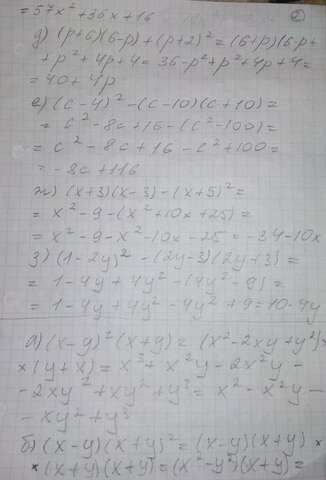 = 57x² + 36x + 16
②
д) (p+6)(6-p) + (p+2)² = (6+p)(6p+
+ p² + 4p + 4 = 36 - p² + p² + 4p + 4 =
= 40 + 4p
е) (c-4)² - (c-10)(c+10) =
= c² - 8c + 16 - (c² - 100) =
= c² - 8c + 16 - c² + 100 =
= -8c + 116
ж) (x+3)(x-3) - (x+5)² =
= x² - 9 - (x² + 10x + 25) =
= x² - 9 - x² - 10x - 25 = -34 - 10x
з) (1-2y)² - (2y-3)(2y+3) =
= 1 - 4y + 4y² - (4y² - 9) =
= 1 - 4y + 4y² - 4y² + 9 = 10 - 4y
а) (x-y)²(x+y) = (x² - 2xy + y²)×
× (y+x) = x³ + x²y - 2x²y -
- 2xy² + xy² + y³ = x² - x²y -
- xy² + y³
б) (x-y)(x+y)² = (x-y)(x+y) ×
× (x+y)(x+y) = (x² - y²)(x+y) =